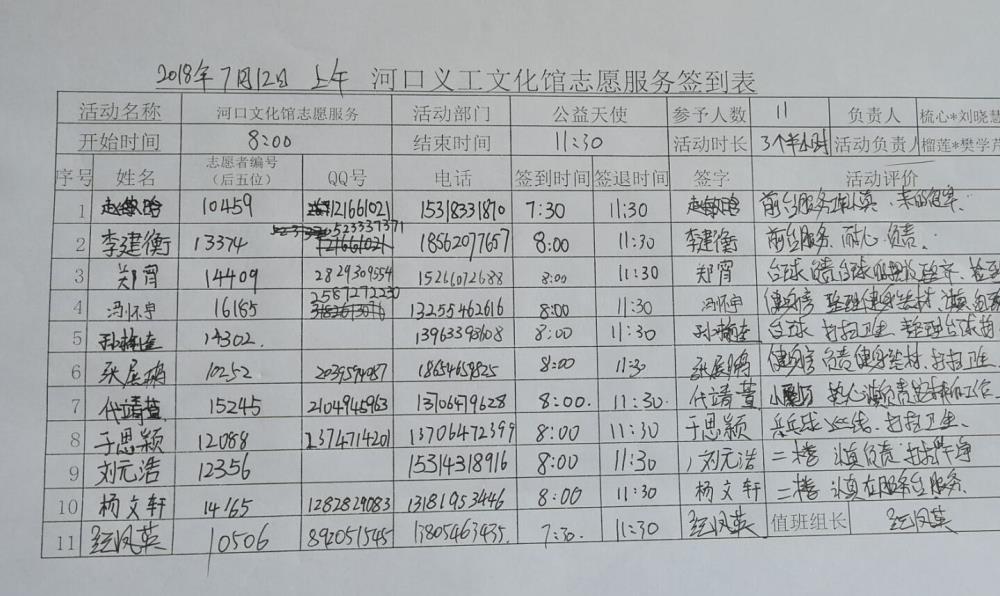 2018年7月12日 上午 河口义工文化馆志愿服务签到表
活动名称 河口文化馆志愿服务 活动部门 公益天使 参予人数 11 负责人 梳心*刘晓慧
开始时间 8:00 结束时间 11:30 活动时长 3个半小时 活动负责人 榴莲*樊学芹
序号 姓名 志愿者编号（后五位） QQ号 电话 签到时间 签退时间 签字 活动评价
1 10459 121661021 15318331870 7:30 11:30 前台服务认真
2 李建衡 13374 523337371 18562077657 8:00 11:30 李建衡 前台服务 耐心 负责
3 郑宵 14409 2829309554 15266072688 8:00 11:30 郑宵 台球 负责台球
4 冯怀宇 16165 2587272230 13255462616 8:00 11:30 冯怀宇 健身房 整理健身器材
5 14302. 13963393608 8:00 11:30 台球 打扫卫生 整理台球
6 张展鹏 10252 2039594087 18654659825 8:00 11:30 张展鹏 健身房 负责健身器材 打扫卫生
7 代靖萱 15245 2104945963 13706479628 8:00. 11:30. 代靖萱
8 于思颖 12088 1374714201 13706472399 8:00 11:30 于思颖 乒乓球 打扫卫生、
9 刘元浩 12356 15314318916 8:00 11:30 刘元浩 二楼 认真负责 打扫干净
10 杨文轩 14165 1282829083 13181953446 8:00 11:30 杨文轩 二楼 认真在服务台服务.
11 10506 892051545 13805463435. 7:30. 11:30 值班组长